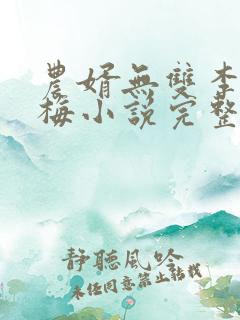 農婿無雙李
梅小說完整
静聽風吟
未任同意禁止轉載